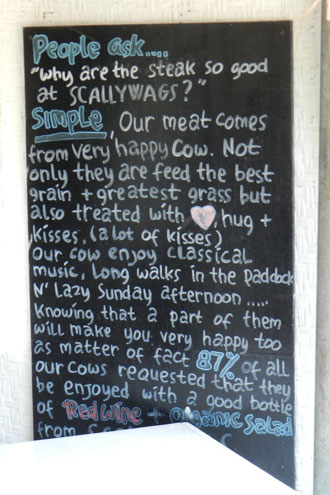 People ask....
"Why are the steak so good
at SCALLYWAGS?"
SIMPLE, Our meat comes
from very happy cow. Not
only they are feed the best
grain + greatest grass but
also treated with ♥, hug +
kisses, (a lot of kisses)
Our cow enjoy classical
music, long walks in the paddock
N' Lazy Sunday afternoon .....
Knowing that a part of them
will make you very happy too
as matter of fact 87% of all
our cows requested that they
be enjoyed with a good bottle
of Red wine + organic salad
from